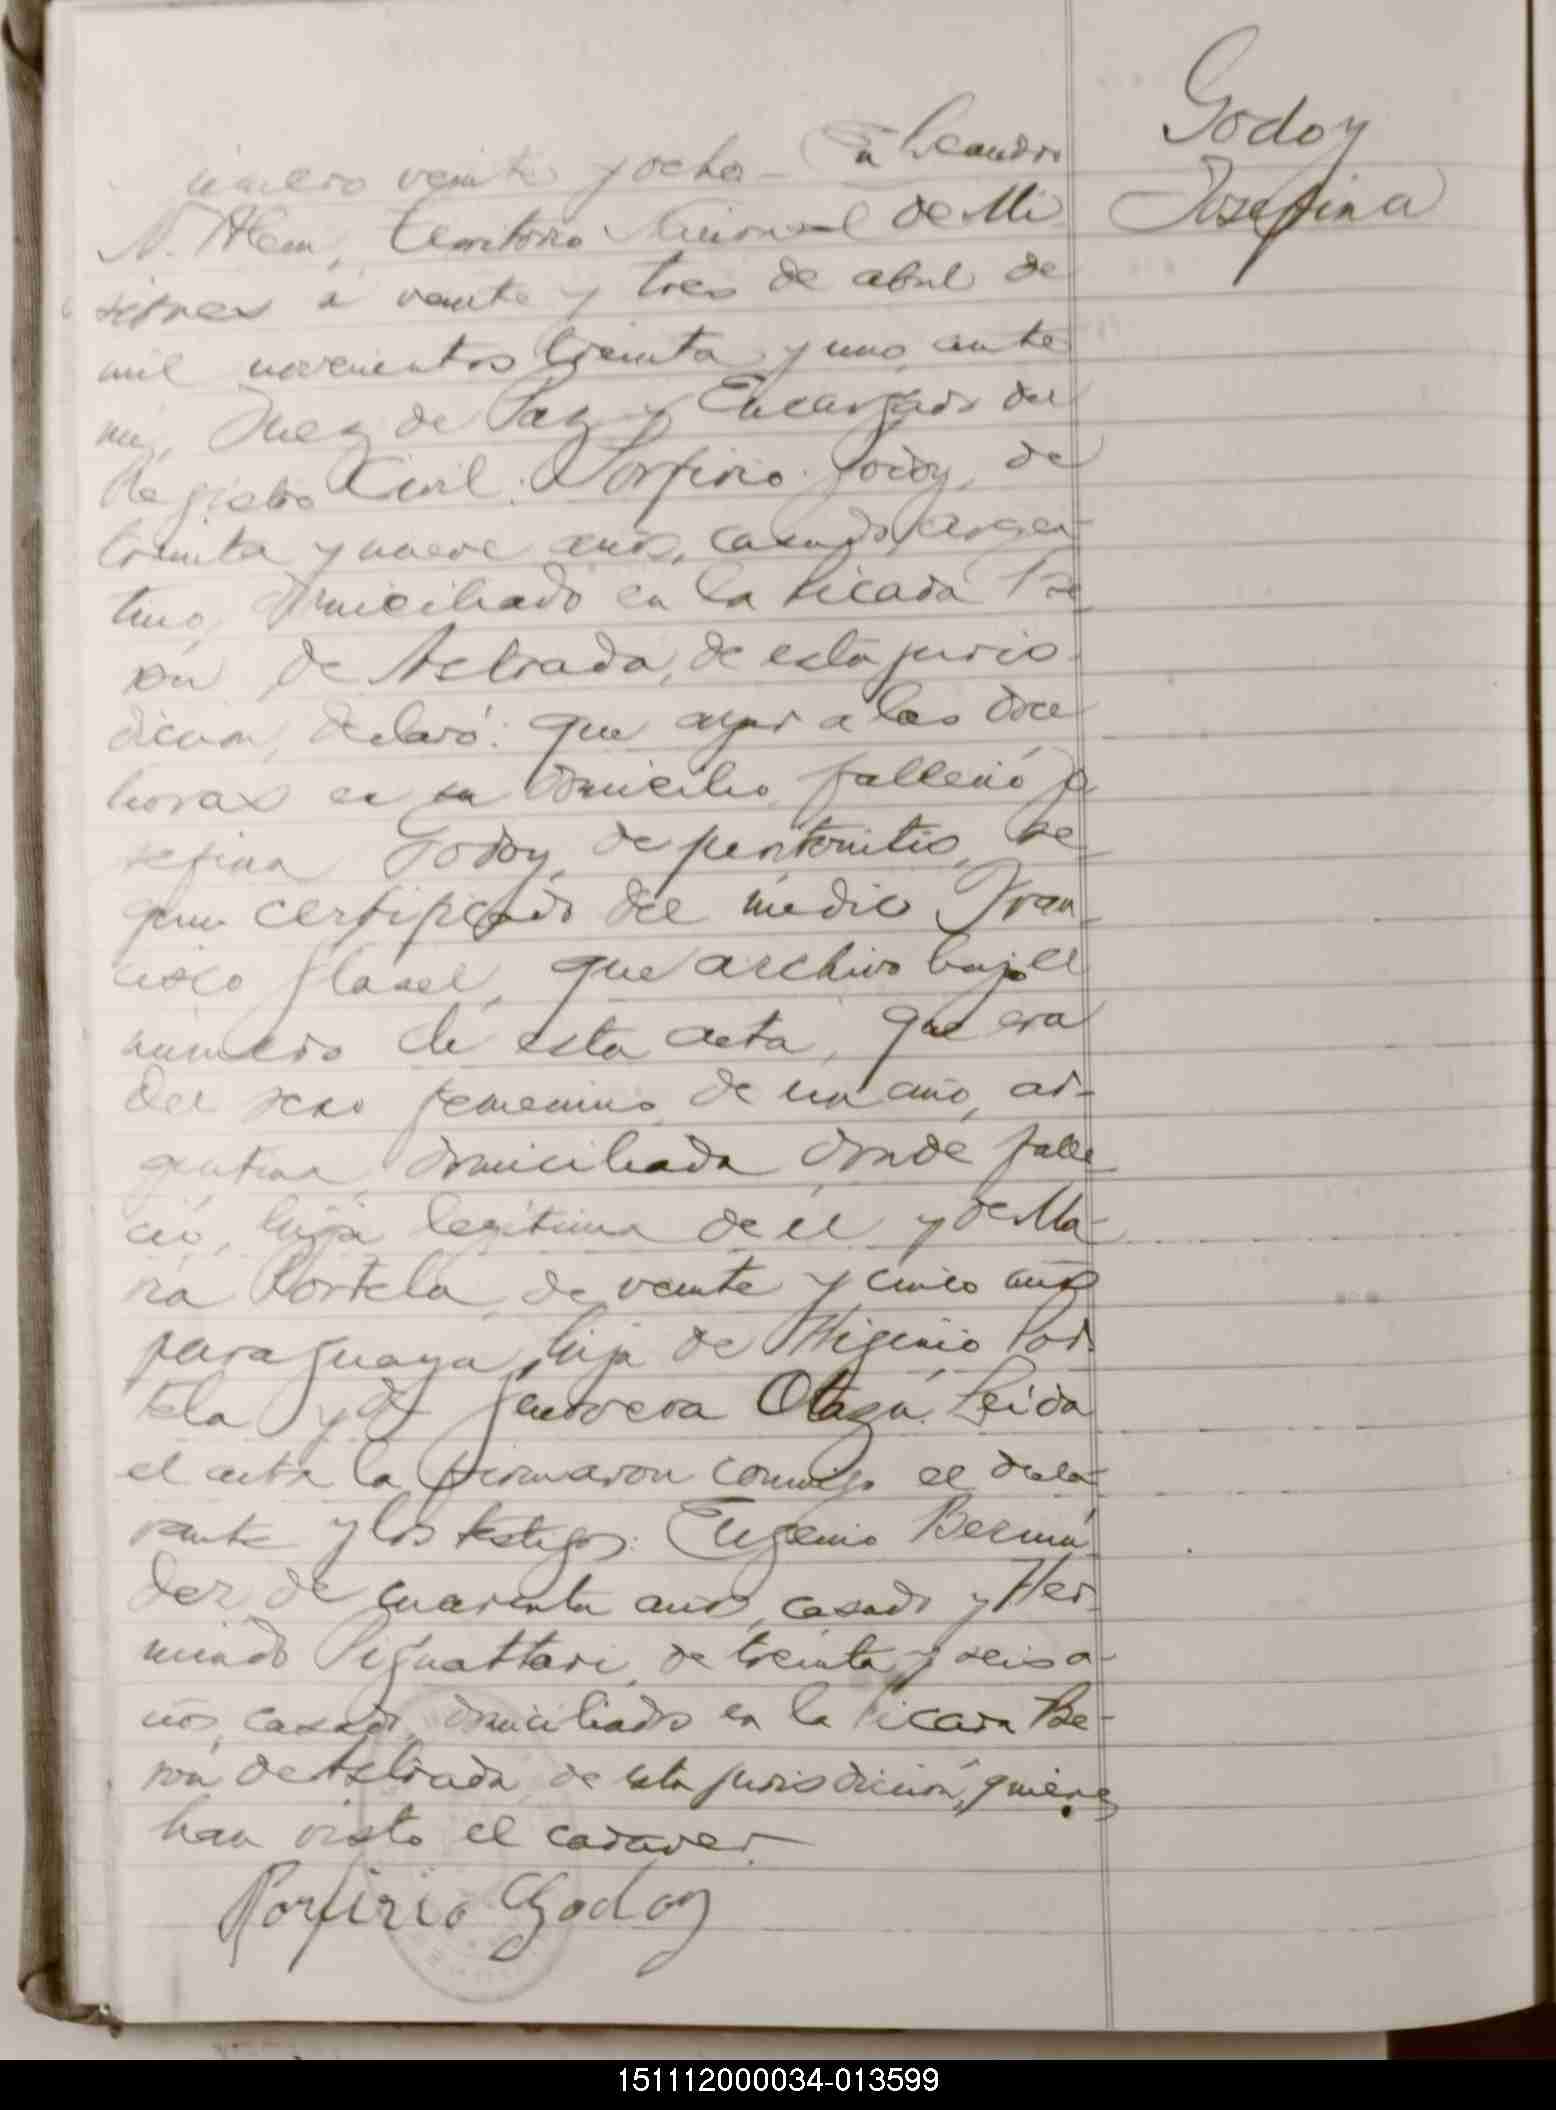 Godoy
Josefina
número veinte y ocho - En Leandro
N. Alem, territorio Nacional de Mi
siones a veinte y tres de abril de
mil novecientos treinta y uno, ante
mi, Juez de Paz y Encargado del
Registro Civil: Porfirio Godoy, de
treinta y nueve años, casado, argen-
tino, domiciliado en la Picada Be
rón de Astrada, de esta juris-
dicción, declaró: que ayer a las doce
horas en su domicilio falleció Jo
sefina Godoy, de peritonitis, se
gun certificado del médico Fran-
cisco Glasel, que archivo bajo el
número de esta acta, que era
del sexo femenino, de un año, ar-
gentina, domiciliada donde falle
ció, hija legítima de él y de Ma-
ria Portela, de veinte y cinco años
paraguaya, hija de Higinio Por-
tela y de Genoveva Otazú. Leida
el acta la firmaron conmigo el decla-
rante y los testigos: Eugenio Bermú-
dez de cuarenta años, casado y Her-
mindo Pignattari, de treinta y seis a-
ños, casado, domiciliados en la Picada Be-
rón de Astrada, de esta jurisdicción, quienes
han visto el cadaver.
Porfirio Godoy
151112000034-013599